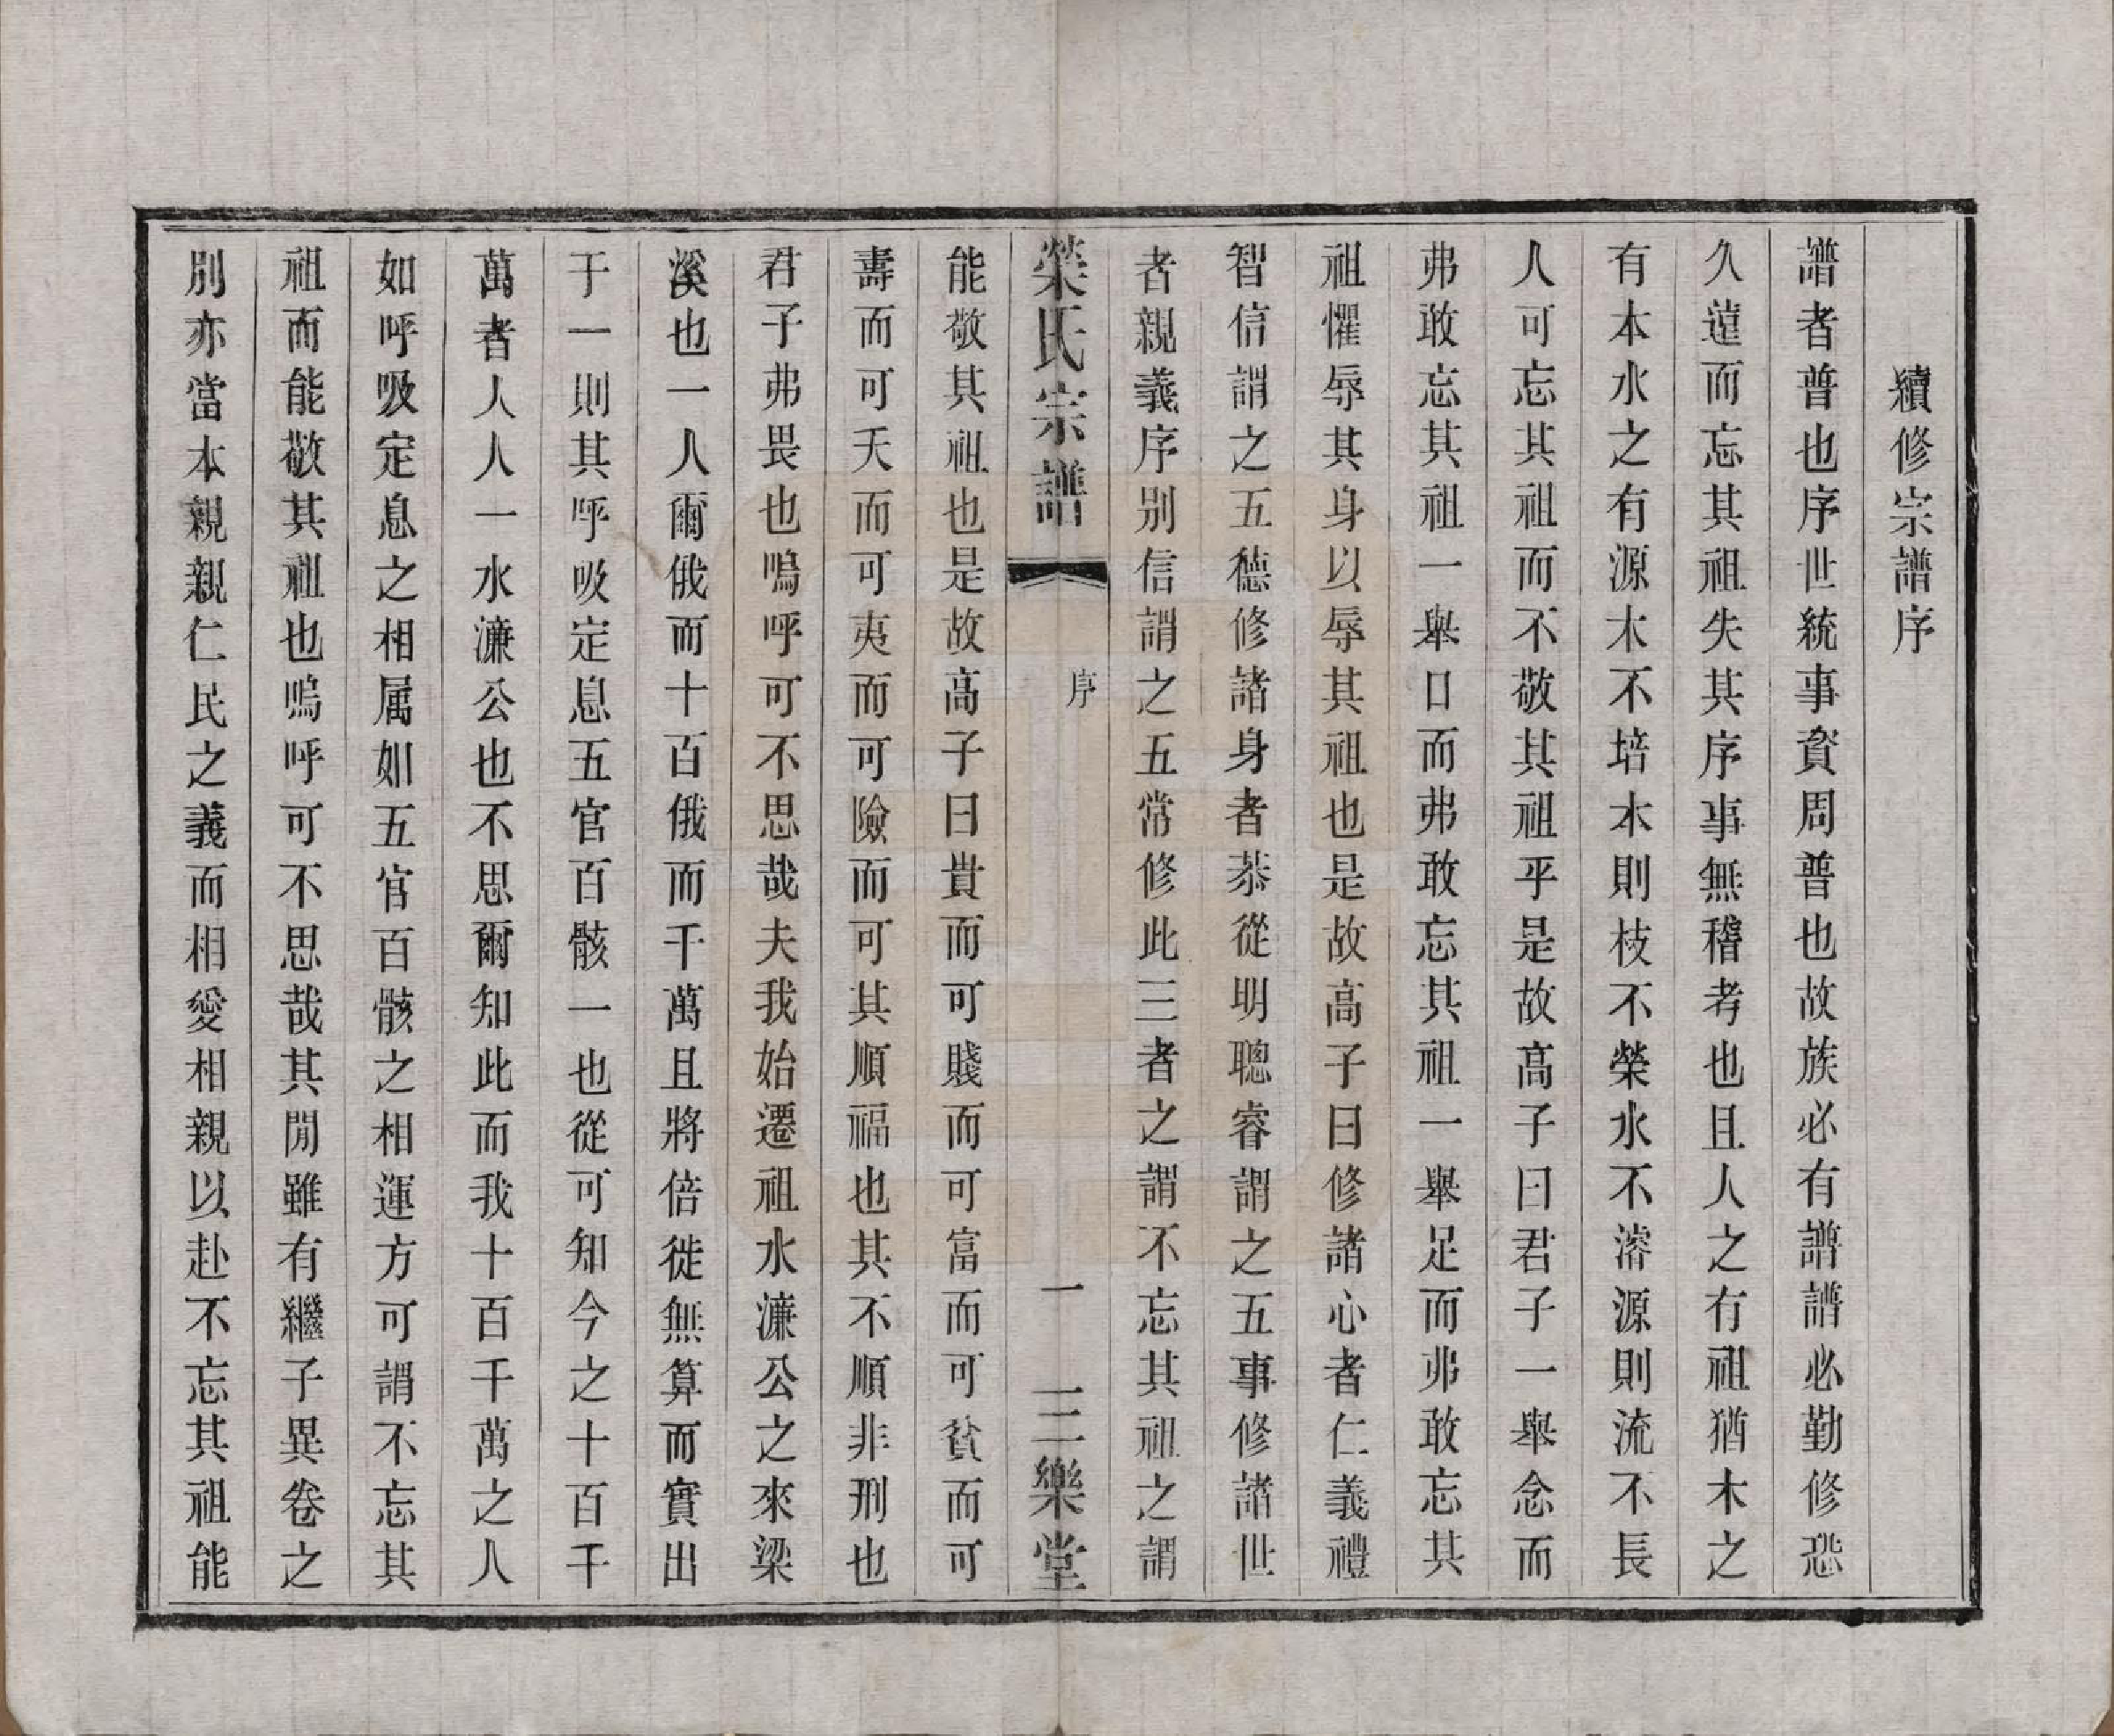 續修宗譜序
譜者普也序世統事資周普也故族必有譜譜必勤修恐
久遠而忘其祖失其序事無稽考也且人之有祖猶木之
有本水之有源木不培本則枝不榮水不濬源則流不長
人可忘其祖而不敬其祖乎是故高子曰君子一舉念而
弗敢忘其祖一舉口而弗敢忘其祖一舉足而弗敢忘其
祖懼辱其身以辱其祖也是故高子曰修諸心者仁義禮
智信謂之五德修諸身者恭從明聰睿謂之五事修諸世
者親義序別信謂之五常修此三者之謂不忘其祖之謂
榮氏宗譜 序 一 三樂堂
能敬其祖也是故高子曰貴而可賤而可富而可貧而可
壽而可夭而可夷而可險而可其順福也其不順非刑也
君子弗畏也嗚呼可不思哉夫我始遷祖水濂公之來梁
溪也一人爾俄而十百俄而千萬且將倍徙無算而實出
于一則其呼吸定息五官百骸一也從可知今之十百千
萬者人人一水濂公也不思爾知此而我十百千萬之人
如呼吸定息之相属如五官百骸之相運方可謂不忘其
祖而能敬其祖也嗚呼可不思哉其閒雖有繼子異卷之
別亦當本親親仁民之義而相愛相親以赴不忘其祖能